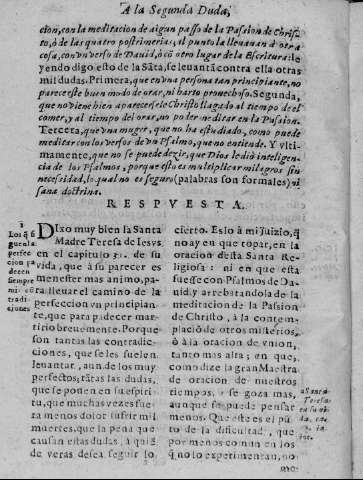 A la Segunda Duda,
cion, con la meditacion de algun passo de la Passion de Christo,
to, ò de las quatro postrimerias, il punto la lleuauan à otra
cosa, con vn verso de Dauid, ò cõ otro lugar de la Escritura: le
yendo digo esto de la Sãta, se leuantã contra ella otras
mil dudas. Primera, que en vna persona tan principiante, no
parece este buen modo de orar, ni harto prouechoso. Segunda,
que no viene bien aparecersele Christo llagado al tiempo de el
comer, y al tiempo del orar, no poder meditar en la Passion.
Tercera, que vna muger, que no ha estudiado, como puede
meditar con los versos de vn Psalmo, que no entiende. Y vlti-
mamente, que no se puede dezir, que Dios le diò inteligen-
cia de los Psalmos, porque esto es multiplicar milagros sin
necesidad, lo qual no es seguro (palabras son formales) ni
sana doctrina.
RESPVESTA.
1
Los q̃ si
guen la
perfec
cion pa
decen
siempre
cõtradi
ciones
DIxo muy bien la Santa
Madre Teresa de Iesvs
en el capitulo 31. de su
vida, que à su parecer es
menester mas animo, pa-
ra lleuar el camino de la
perfeccion vn principian-
te, que para padecer mar-
tirio breuemente. Porque
son tantas las contradic-
ciones, que se les suelen
leuantar, aun de los muy
perfectos; tãtas las dudas,
que se ponen en su espiri-
tu, que muchas vezes fue-
ra menos dolor sufrir mil
muertes, que la pena que
causan estas dudas, à quiẽ
de veras desea seguir lo
cierto. Esto à mi juizio, q̃
no ay en que topar, en la
oracion desta Santa Re-
ligiosa: ni en que esta
fuesse con Psalmos de Da-
uid, y arrebatandola de la
meditacion de la Passion
de Christo, à la contem-
placiõ de otros misterios,
ò à la oracion de vnion,
tanto mas alta; en que,
como dize la gran Maestra
de oracion de nuestros
tiempos, se goza mas,
aunque se puede pensar
menos. Que este es el pũ-
to de la dificultad, que
por menos comun en los
que no lo experimentan, no
a Santa
Teresa
en su vi-